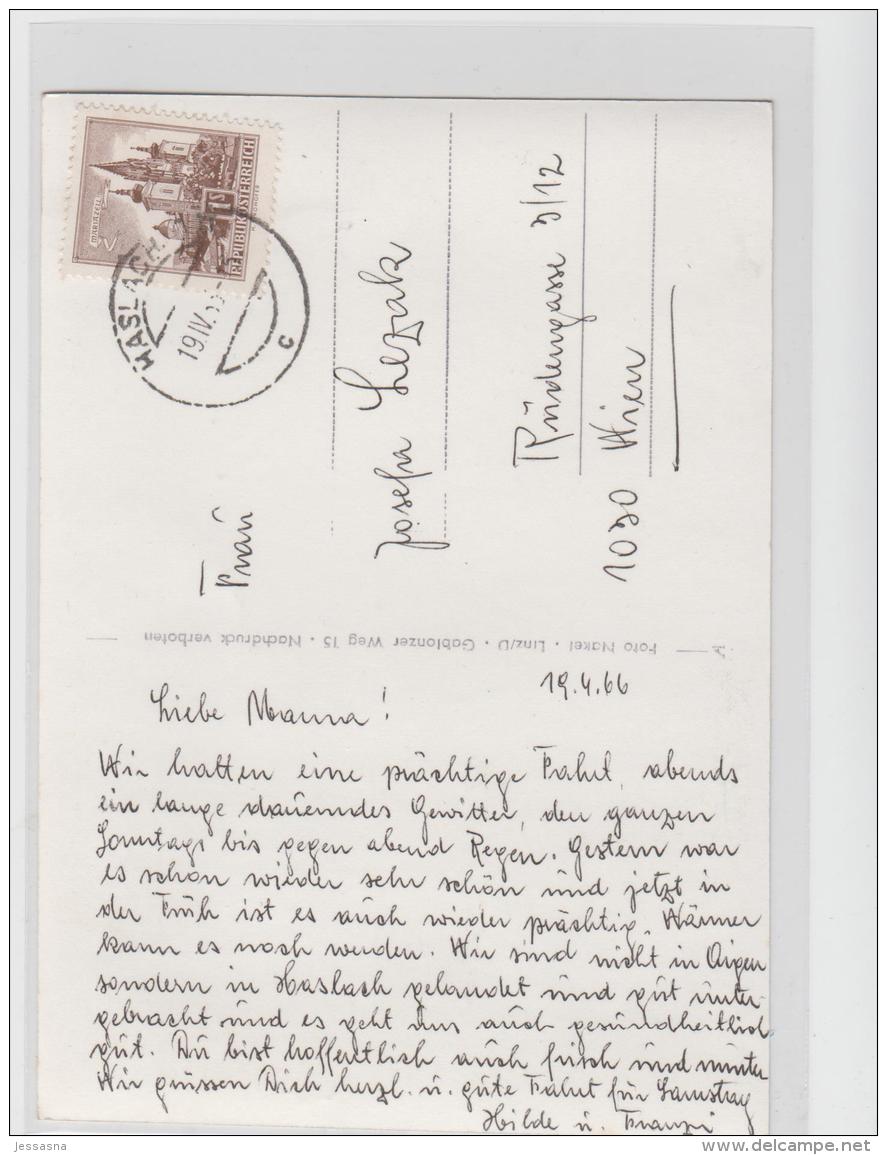 MARIAZELL
1S
REPUBLIK ÖSTERREICH
HASLACH
19.IV.
c
Frau
Josefa Lezak
Rüdengasse 3/12
1030 Wien
Foto Nakel • Linz/D • Gablonzer Weg 15 • Nachdruck verboten
19.4.66
Liebe Mama!
Wir hatten eine prächtige Fahrt, abends
ein lange dauerndes Gewitter, den ganzen
Sonntags bis gegen abend Regen. Gestern war
es schon wieder sehr schön und jetzt in
der Früh ist es auch wieder prächtig. Wärmer
kann es noch werden. Wir sind nicht in Aigen
sondern in Haslach gelandet und gut unter-
gebracht und es geht uns auch gesundheitlich
gut. Du bist hoffentlich auch frisch und munter
Wir grüssen Dich herzl. u. gute Fahrt für Samstag
Hilde u. Franzi
jessasna
www.delcampe.net